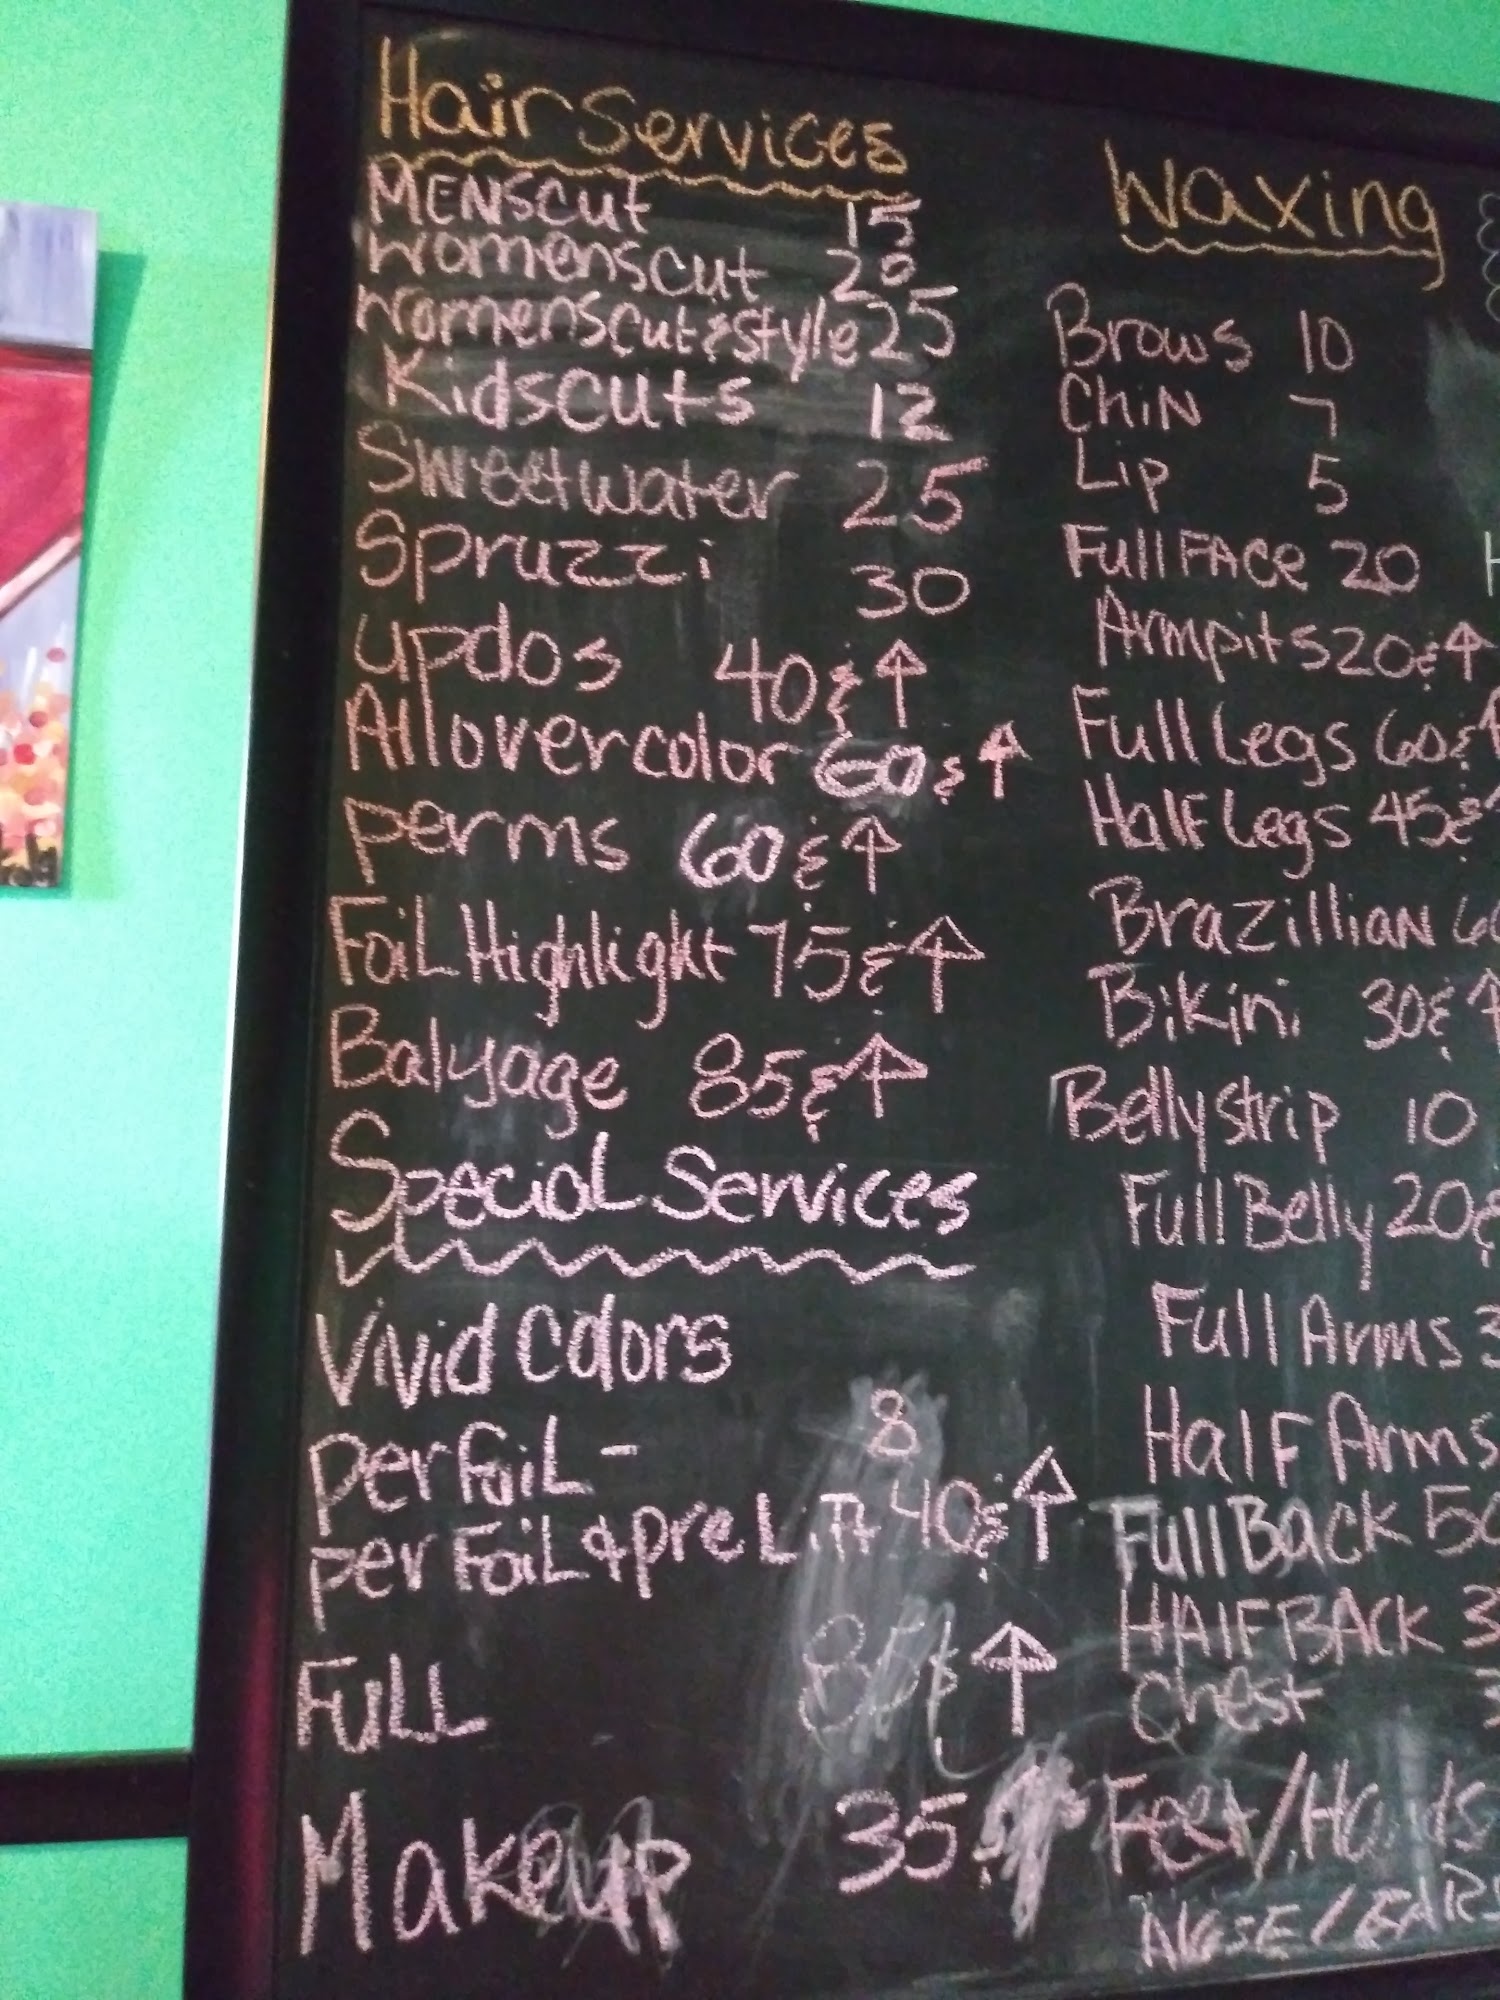 Hair Services
MENSCUT 15
Womenscut 20
Womenscut & style 25
Kidscuts 12
Sweetwater 25
Spruzzi 30
updos 40 & ↑
All over color 60 & ↑
perms 60 & ↑
Foil Highlight 75 & ↑
Balyage 85 & ↑
Special Services
Vivid Colors
per foil - 8
per Foil & pre Lift 40 & ↑
Full & ↑
Makeup 35
Waxing
Brows 10
Chin 7
Lip 5
Full FACe 20
Armpits 20 & ↑
Full Legs 60 & ↑
Half Legs 45 &
Brazillian
Bikini 30 & ↑
Belly strip 10
Full Belly 20 &
Full Arms
Half Arms
Full Back
HAlF BACK
Chest
Feet/Hands
NOSE/EARS